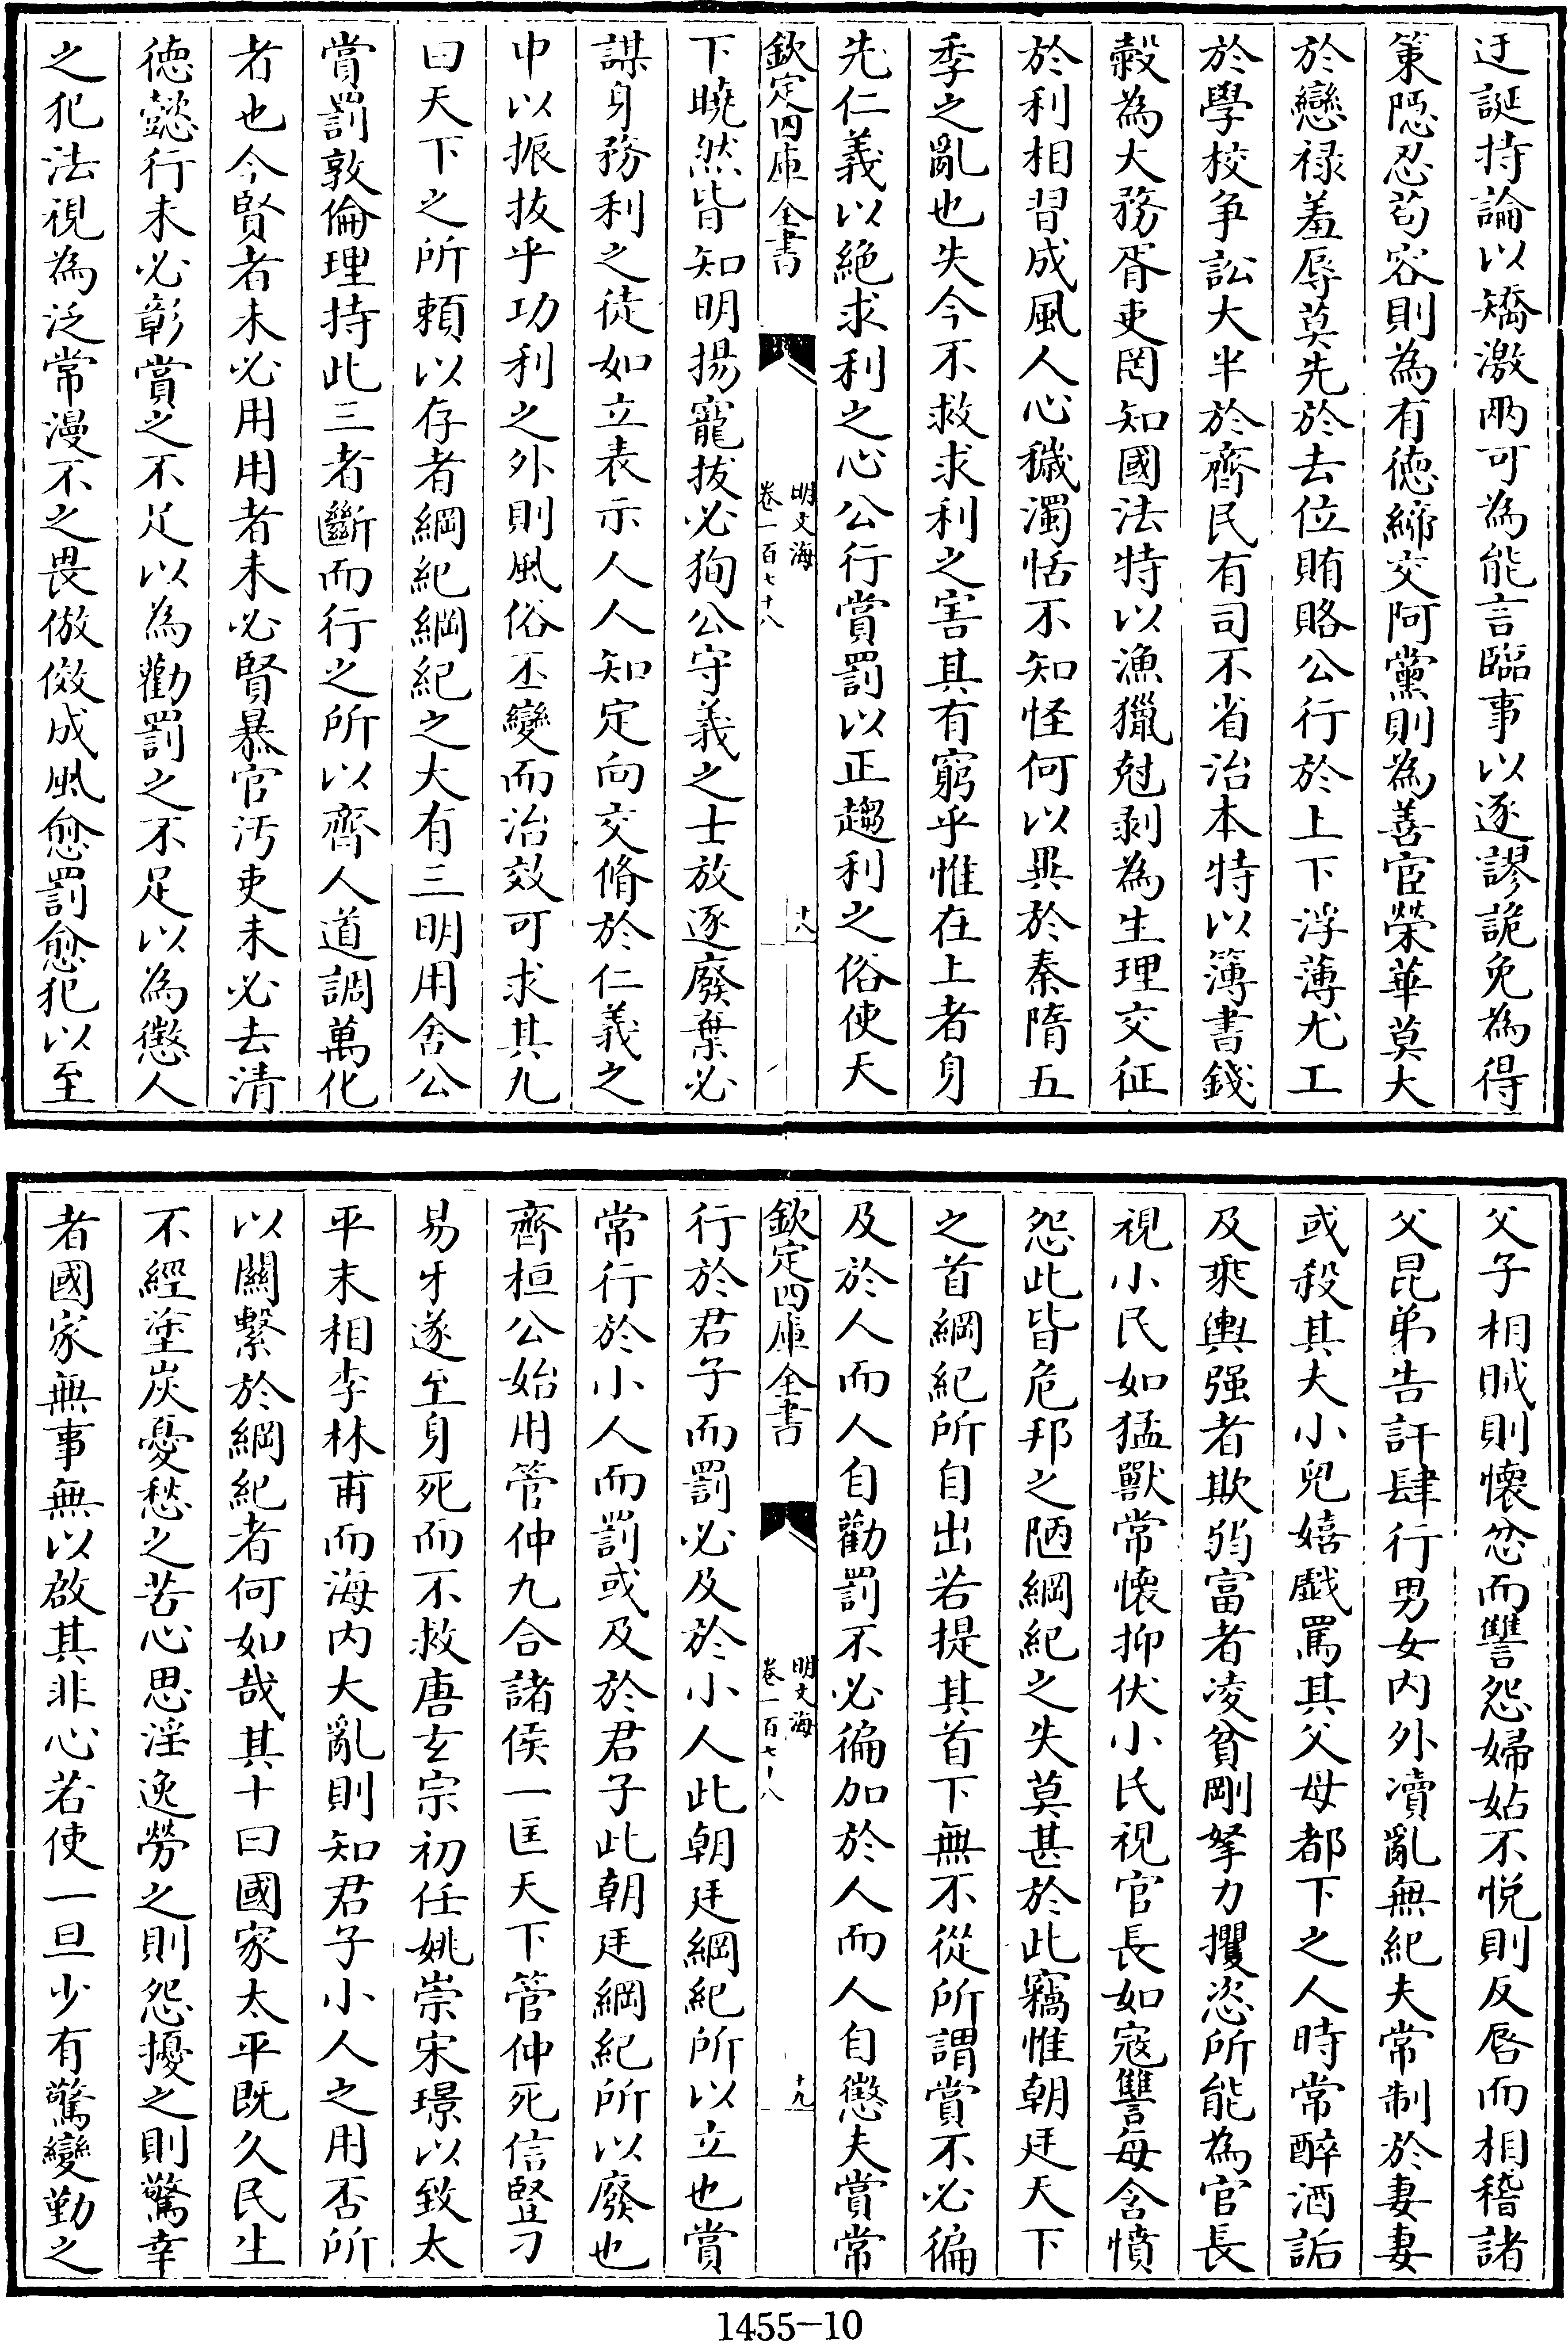 迂誕持論以矯激兩可為能言臨事以逐謬詭免為得
策隠忍茍容則為有徳締交阿黨則為善宦榮華莫大
於戀禄羞辱莫先於去位賄賂公行於上下浮薄尤工
於學校争訟大半於齊民有司不省治本特以簿書錢
穀為大務胥吏罔知國法特以漁獵尅剥為生理交征
於利相習成風人心穢濁恬不知怪何以異於秦隋五
季之亂也失今不救求利之害其有窮乎惟在上者身
先仁義以絶求利之心公行賞罰以正趨利之俗使天
欽定四庫全書
明文海
卷一百七十八
十八
下曉然皆知明揚寵拔必狥公守義之士放逐廢棄必
謀身務利之徒如立表示人人知定向交脩於仁義之
中以振拔乎功利之外則風俗丕變而治效可求其九
曰天下之所頼以存者綱紀綱紀之大有三明用舍公
賞罰敦倫理持此三者斷而行之所以齊人道調萬化
者也今賢者未必用用者未必賢暴官汚吏未必去清
徳懿行未必彰賞之不足以為勸罰之不足以為懲人
之犯法視為泛常漫不之畏倣傚成風愈罰愈犯以至
父子相賊則懐忿而讐怨婦姑不悦則反唇而相稽諸
父昆弟告訐肆行男女内外凟亂無紀夫常制於妻妻
或殺其夫小兒嬉戯罵其父母都下之人時常醉酒詬
及乘輿强者欺弱富者凌貧剛拏力攫恣所能為官長
視小民如猛獸常懐抑伏小民視官長如寇讐每含憤
怨此皆危邦之陋綱紀之失莫甚於此竊惟朝廷天下
之首綱紀所自出若提其首下無不從所謂賞不必徧
及於人而人自勸罰不必徧加於人而人自懲夫賞常
欽定四庫全書
明文海
卷一百七十八
十九
行於君子而罰必及於小人此朝廷綱紀所以立也賞
常行於小人而罰或及於君子此朝廷綱紀所以廢也
齊桓公始用管仲九合諸侯一匡天下管仲死信豎刁
易牙遂至身死而不救唐玄宗初任姚崇宋璟以致太
平末相李林甫而海内大亂則知君子小人之用否所
以關繫於綱紀者何如哉其十曰國家太平既久民生
不經塗炭憂愁之苦心思淫逸勞之則怨擾之則驚幸
者國家無事無以啟其非心若使一旦少有驚變勤之
1455-10